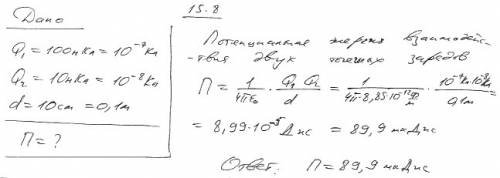 Дано
Q₁ = 100нКл = 10⁻⁷Кл
Q₂ = 10нКл = 10⁻⁸Кл
d = 10см = 0,1м
П = ?
15.8
Потенциальная энергия взаимодейс-
твия двух точечных зарядов
П = 1/(4πε₀) · Q₁ Q₂/d = 1/(4π·8,85·10⁻¹² Ф/м) · 10⁻⁷Кл·10⁻⁸Кл/0,1м =
= 8,99·10⁻⁵ Дж = 89,9 мкДж
Ответ: П = 89,9 мкДж